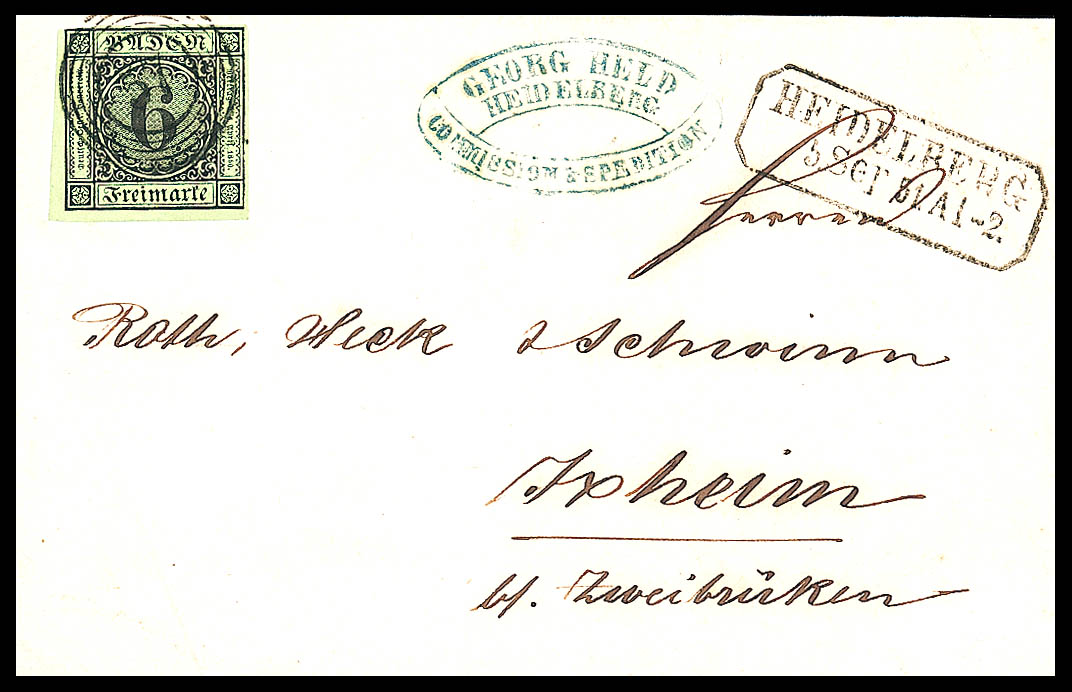 BADEN
6
Freimarke
GEORG HELD
HEIDELBERG
COMMISSION & SPEDITION
HEIDELBERG
5 SEP A 1-2
Herren
Roth, Heck & Schwinn
Ixheim
bf. Zweibrüken